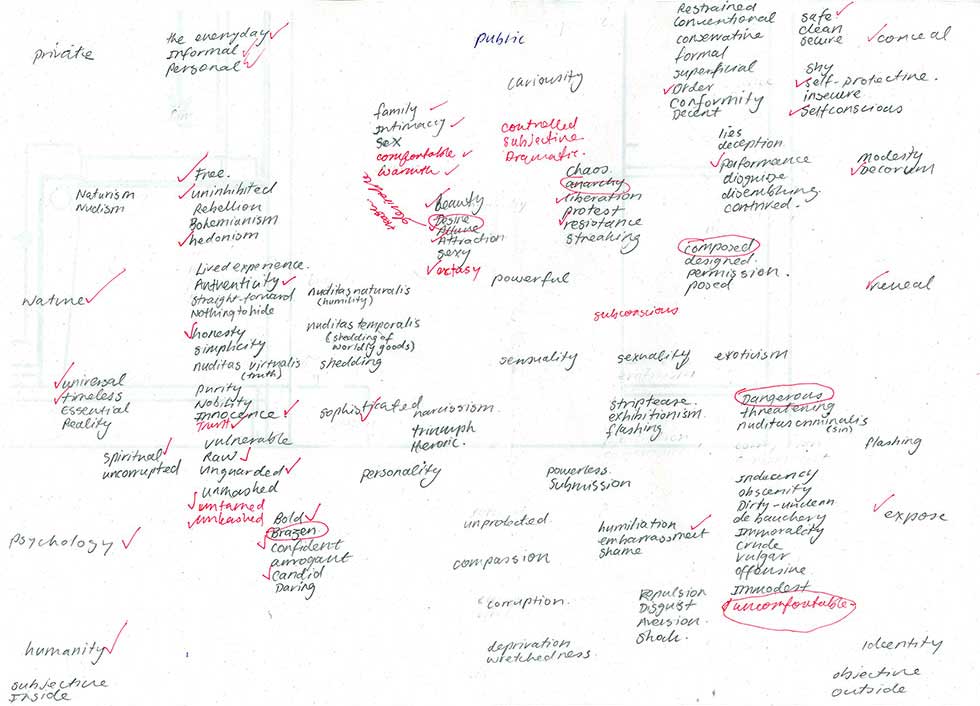 private
the everyday
Informal
Personal
public
Restrained
Conventional
conservative
formal
superficial
Order
Conformity
Decent
safe
clean
secure
conceal
shy
self-protective.
insecure
Selfconscious
cariousity
family
Intimaccy
Sex
comfortable
Warmth
controlled
subjective
Dramatic.
lies
deception
performance
disguise
disembling.
contrived.
modesty
Decorum
Naturism
Nudism
Free.
uninhibited
Rebellion
Bohemianism
hedonism
desirable
beauty
Desire
Allure
Attraction
sexy
extasy
chaos.
anarchy
liberation
protest
resistance
streaking
composed
designed.
permission.
posed
Nature
Lived experience.
Authenticity
straight-forward
Nothing to hide
honesty
simplicity
nuditas virtualis
(truth)
purity
Nobility
Innocence
Trust
nuditas naturalis
(humility)
nuditas temporalis
(shedding of
worldly goods)
shedding
powerful
subconscious
reveal
sensuality
sexuality
exoticism
universal
timeless
Essential
Reality
sophisticated
narcissism.
triumph
Heroic.
striptease.
exhibitionism.
flashing
Dangerous
threatening
nuditas criminalis
(sin)
flashing
spiritual
uncorrupted
vulnerable
Raw
Unguarded
unmasked
untamed
unleashed
personality
powerless.
Submission
Indecency
obscenity
Dirty-unclean
debauchery
Immorality
crude
vulgar
offensive
Immodest
uncomfortable
expose
psychology
Bold
Brazen
confident
arrogant
candid
Daring
unprotected
compassion
humiliation
embarrassment
shame
corruption.
Repulsion
Disgust
Aversion.
Shock.
humanity
deprivation
wretchedness.
Identity
subjective
Inside
objective
outside